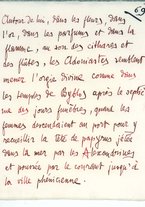 69
Autour de lui, dans les fleurs, dans
l'or, dans les parfums et dans la
flamme, au son des cithares et
des flûtes, les Adoniastes semblent
mener l'orgie divine comme dans
les temples de Byblos après le septiè-
me des jours funèbres, quand les
femmes descendaient au port pour y
recueillir la tête de papyrus jetée
dans la mer par les Alexandrines
et poussée par le courant jusqu'à
la ville phénicienne.